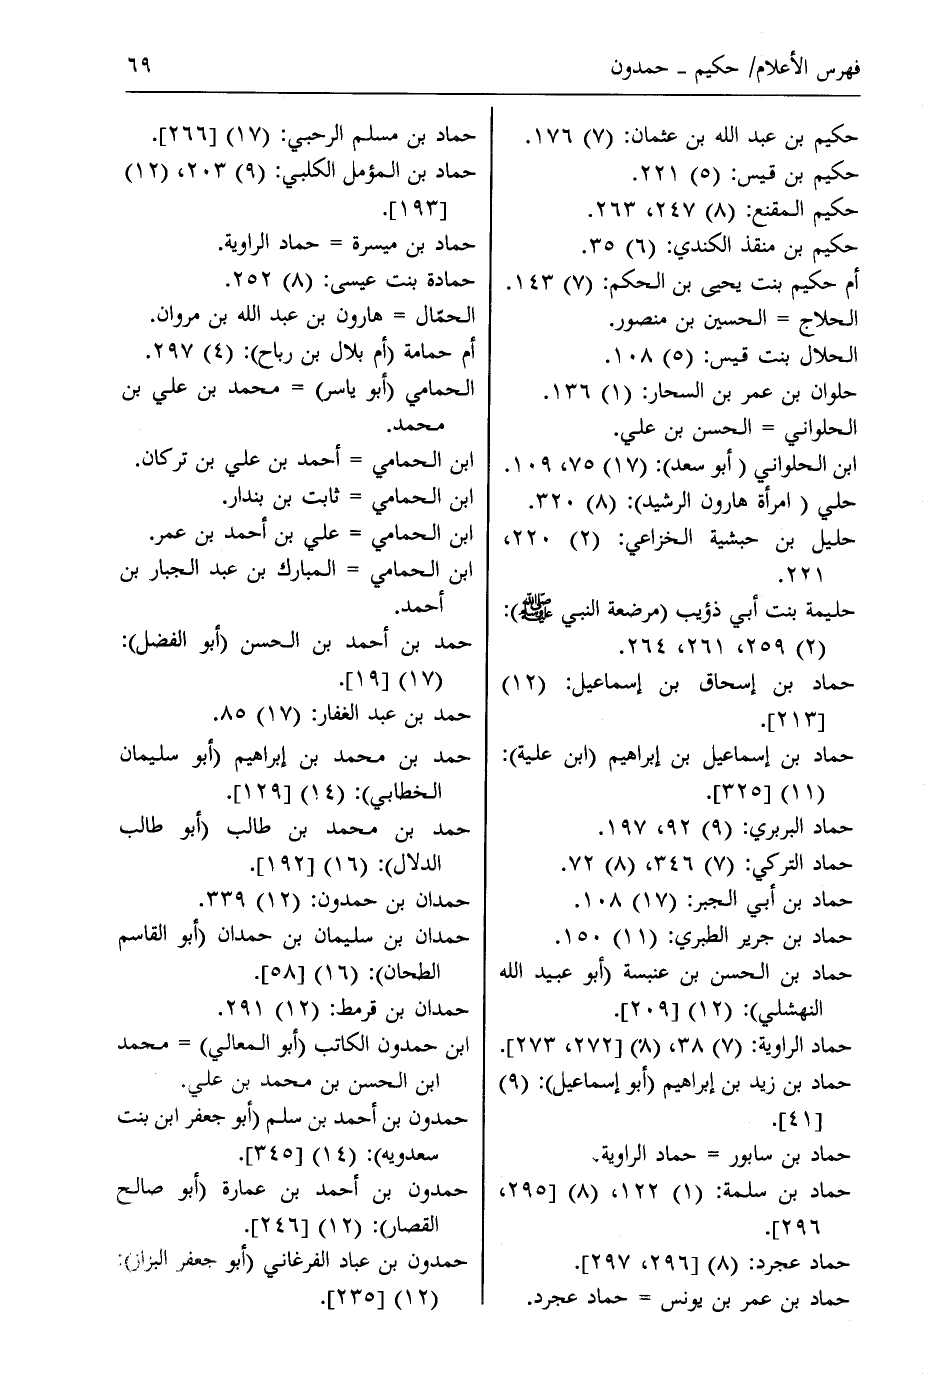 فهرس الأعلام/ حكيم ـ حمدون
٦٩
حكيم بن عبد الله بن عثمان: (٧) ١٧٦.
حكيم بن قيس: (٥) ٢٢١.
حكيم المقنع: (٨) ٢٤٧، ٢٦٣.
حكيم بن منقذ الكندي: (٦) ٣٥.
أم حكيم بنت يحيى بن الحكم: (٧) ١٤٣.
الحلاج = الحسين بن منصور.
الحلال بنت قيس: (٥) ١٠٨.
حلوان بن عمر بن السحار: (١) ١٣٦.
الحلواني = الحسن بن علي.
ابن الحلواني ( أبو سعد): (١٧) ٧٥، ١٠٩.
حلي ( امرأة هارون الرشيد): (٨) ٣٢٠.
حليل بن حبشية الخزاعي: (٢) ٢٢٠،
٢٢١.
حليمة بنت أبي ذؤيب (مرضعة النبي ﷺ):
(٢) ٢٥٩، ٢٦١، ٢٦٤.
حماد بن إسحاق بن إسماعيل: (١٢)
[٢١٣].
حماد بن إسماعيل بن إبراهيم (ابن علية):
(١١) [٣٢٥].
حماد البربري: (٩) ٩٢، ١٩٧.
حماد التركي: (٧) ٣٤٦، (٨) ٧٢.
حماد بن أبي الجبر: (١٧) ١٠٨.
حماد بن جرير الطبري: (١١) ١٥٠.
حماد بن الحسن بن عنبسة (أبو عبيد الله
النهشلي): (١٢) [٢٠٩].
حماد الراوية: (٧) ٣٨، (٨) [٢٧٢، ٢٧٣].
حماد بن زيد بن إبراهيم (أبو إسماعيل): (٩)
[٤١].
حماد بن سابور = حماد الراوية.
حماد بن سلمة: (١) ١٢٢، (٨) [٢٩٥،
٢٩٦].
حماد عجرد: (٨) [٢٩٦، ٢٩٧].
حماد بن عمر بن يونس = حماد عجرد.
حماد بن مسلم الرحبي: (١٧) [٢٦٦].
حماد بن المؤمل الكلبي: (٩) ٢٠٣، (١٢)
[١٩٣].
حماد بن ميسرة = حماد الراوية.
حمادة بنت عيسى: (٨) ٢٥٢.
الحمّال = هارون بن عبد الله بن مروان.
أم حمامة (أم بلال بن رباح): (٤) ٢٩٧.
الحمامي (أبو ياسر) = محمد بن علي بن
محمد.
ابن الحمامي = أحمد بن علي بن تركان.
ابن الحمامي = ثابت بن بندار.
ابن الحمامي = علي بن أحمد بن عمر.
ابن الحمامي = المبارك بن عبد الجبار بن
أحمد.
حمد بن أحمد بن الحسن (أبو الفضل):
(١٧) [١٩].
حمد بن عبد الغفار: (١٧) ٨٥.
حمد بن محمد بن إبراهيم (أبو سليمان
الخطابي): (١٤) [١٢٩].
حمد بن محمد بن طالب (أبو طالب
الدلال): (١٦) [١٩٢].
حمدان بن حمدون: (١٢) ٣٣٩.
حمدان بن سليمان بن حمدان (أبو القاسم
الطحان): (١٦) [٥٨].
حمدان بن قرمط: (١٢) ٢٩١.
ابن حمدون الكاتب (أبو المعالي) = محمد
ابن الحسن بن محمد بن علي.
حمدون بن أحمد بن سلم (أبو جعفر ابن بنت
سعدويه): (١٤) [٣٤٥].
حمدون بن أحمد بن عمارة (أبو صالح
القصار): (١٢) [٢٤٦].
حمدون بن عباد الفرغاني (أبو جعفر البزاز):
(١٢) [٢٣٥].